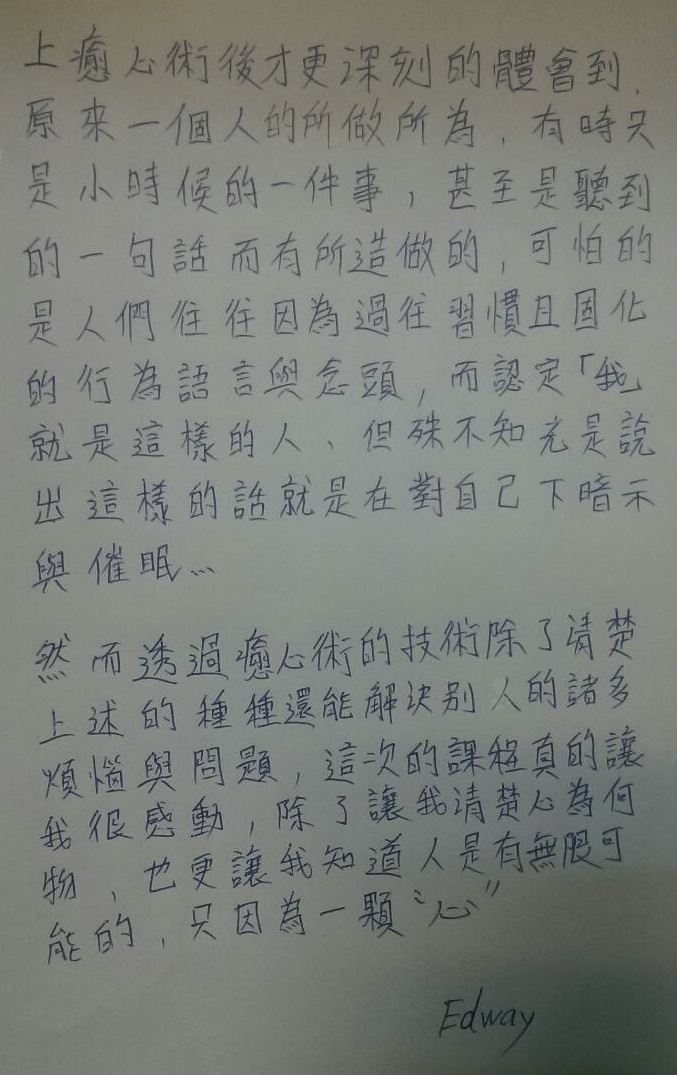 上癒心術後才更深刻的體會到，
原來一個人的所做所為，有時只
是小時候的一件事，甚至是聽到
的一句話而有所造做的，可怕的
是人們往往因為過往習慣且固化
的行為語言與念頭，而認定「我」
就是這樣的人、但殊不知光是說
出這樣的話就是在對自己下暗示
與催眠…
然而透過癒心術的技術除了清楚
上述的種種還能解決別人的諸多
煩惱與問題，這次的課程真的讓
我很感動，除了讓我清楚心為何
物，也更讓我知道人是有無限可
能的，只因為一顆〝心〞
Edway